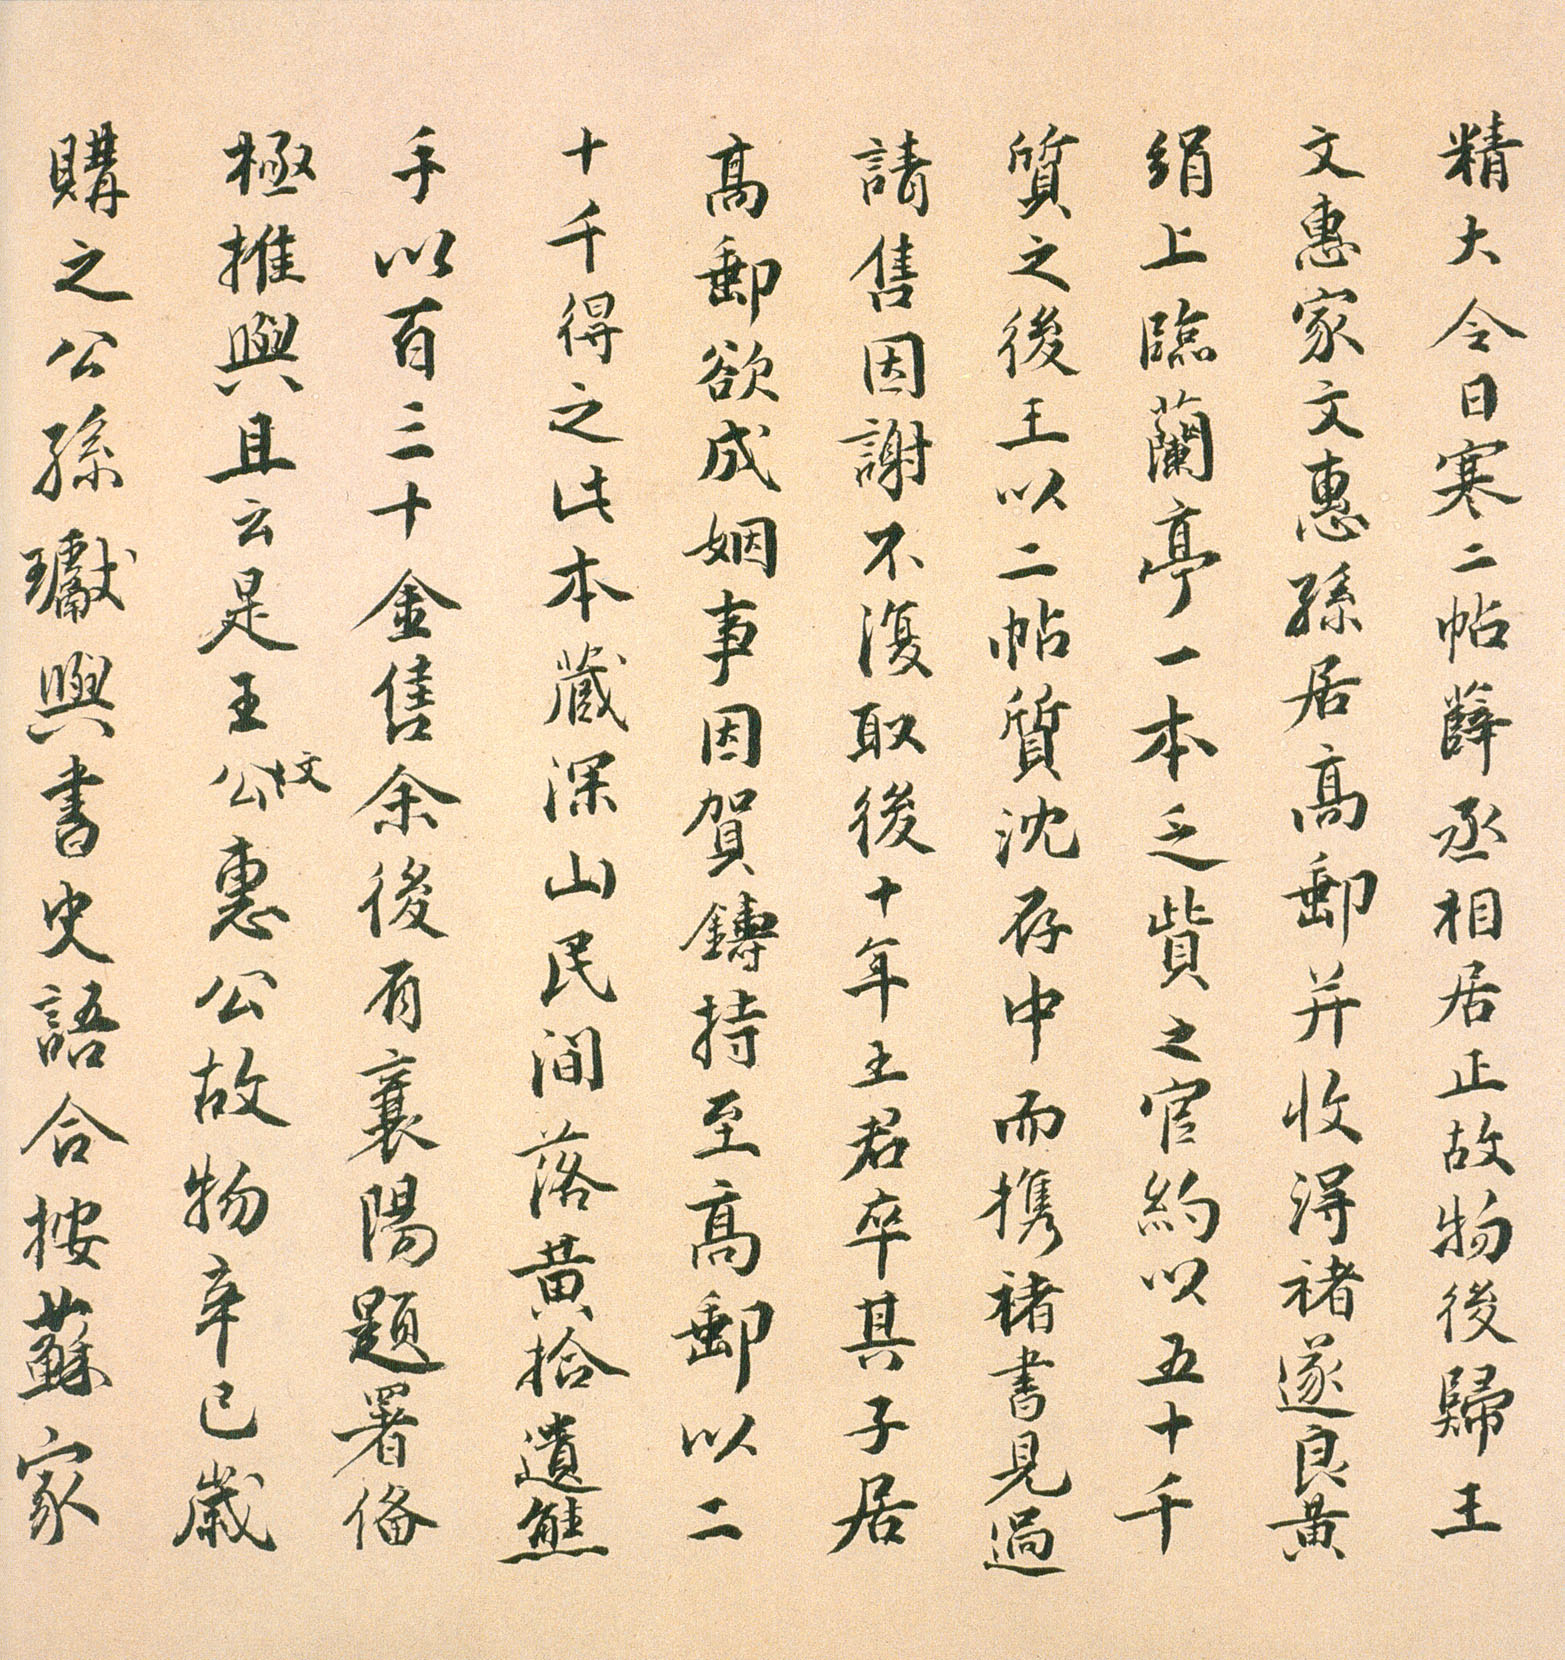 精大令日寒二帖薛丞相居正故物後歸王
文惠家文惠孫居高郵并收得褚遂良黃
絹上臨蘭亭一本乏貲之官約以五十千
質之後王以二帖質沈存中而携褚書見過
請售因謝不復取後十年王君卒其子居
高郵欲成姻事因賀鑄持至高郵以二
十千得之此本藏深山民間落黃拾遺熊
手以百三十金售余後有襄陽題署俻
極推與且云是王文公惠公故物辛巳歲
購之公孫瓛與書史語合按蘇家